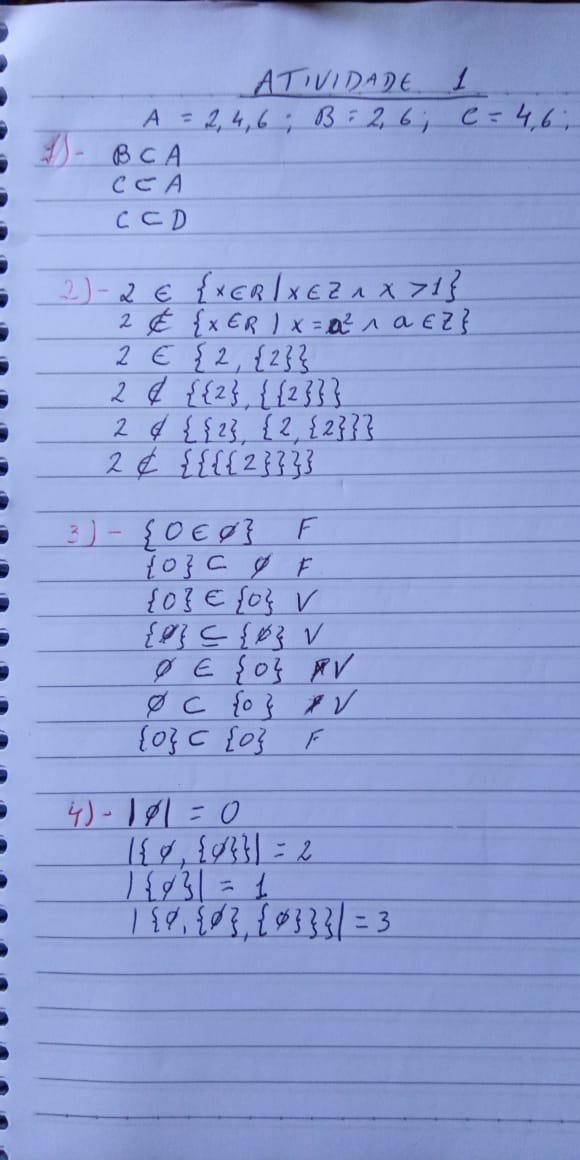 ATIVIDADE 1
A = 2,4,6; B = 2,6; C = 4,6;
1)- B ⊂ A
C ⊂ A
C ⊂ D
2)- 2 ∈ {x∈R | x∈Z ∧ x >1}
2 ∉ {x∈R | x = a² ∧ a ∈ Z}
2 ∈ {2, {2}}
2 ∉ {{2}, {{2}}}
2 ∉ {{2}, {2, {2}}}
2 ∉ {{{{2}}}}
3)- {0 ∈ ∅} F
{0} ⊂ ∅ F
{0} ∈ {0} V
{∅} ⊆ {∅} V
∅ ∈ {0} V
∅ ⊂ {0} V
{0} ⊂ {0} F
4)- |∅| = 0
|{∅, {∅}}| = 2
|{∅}| = 1
|{∅, {∅}, {∅}}}| = 3